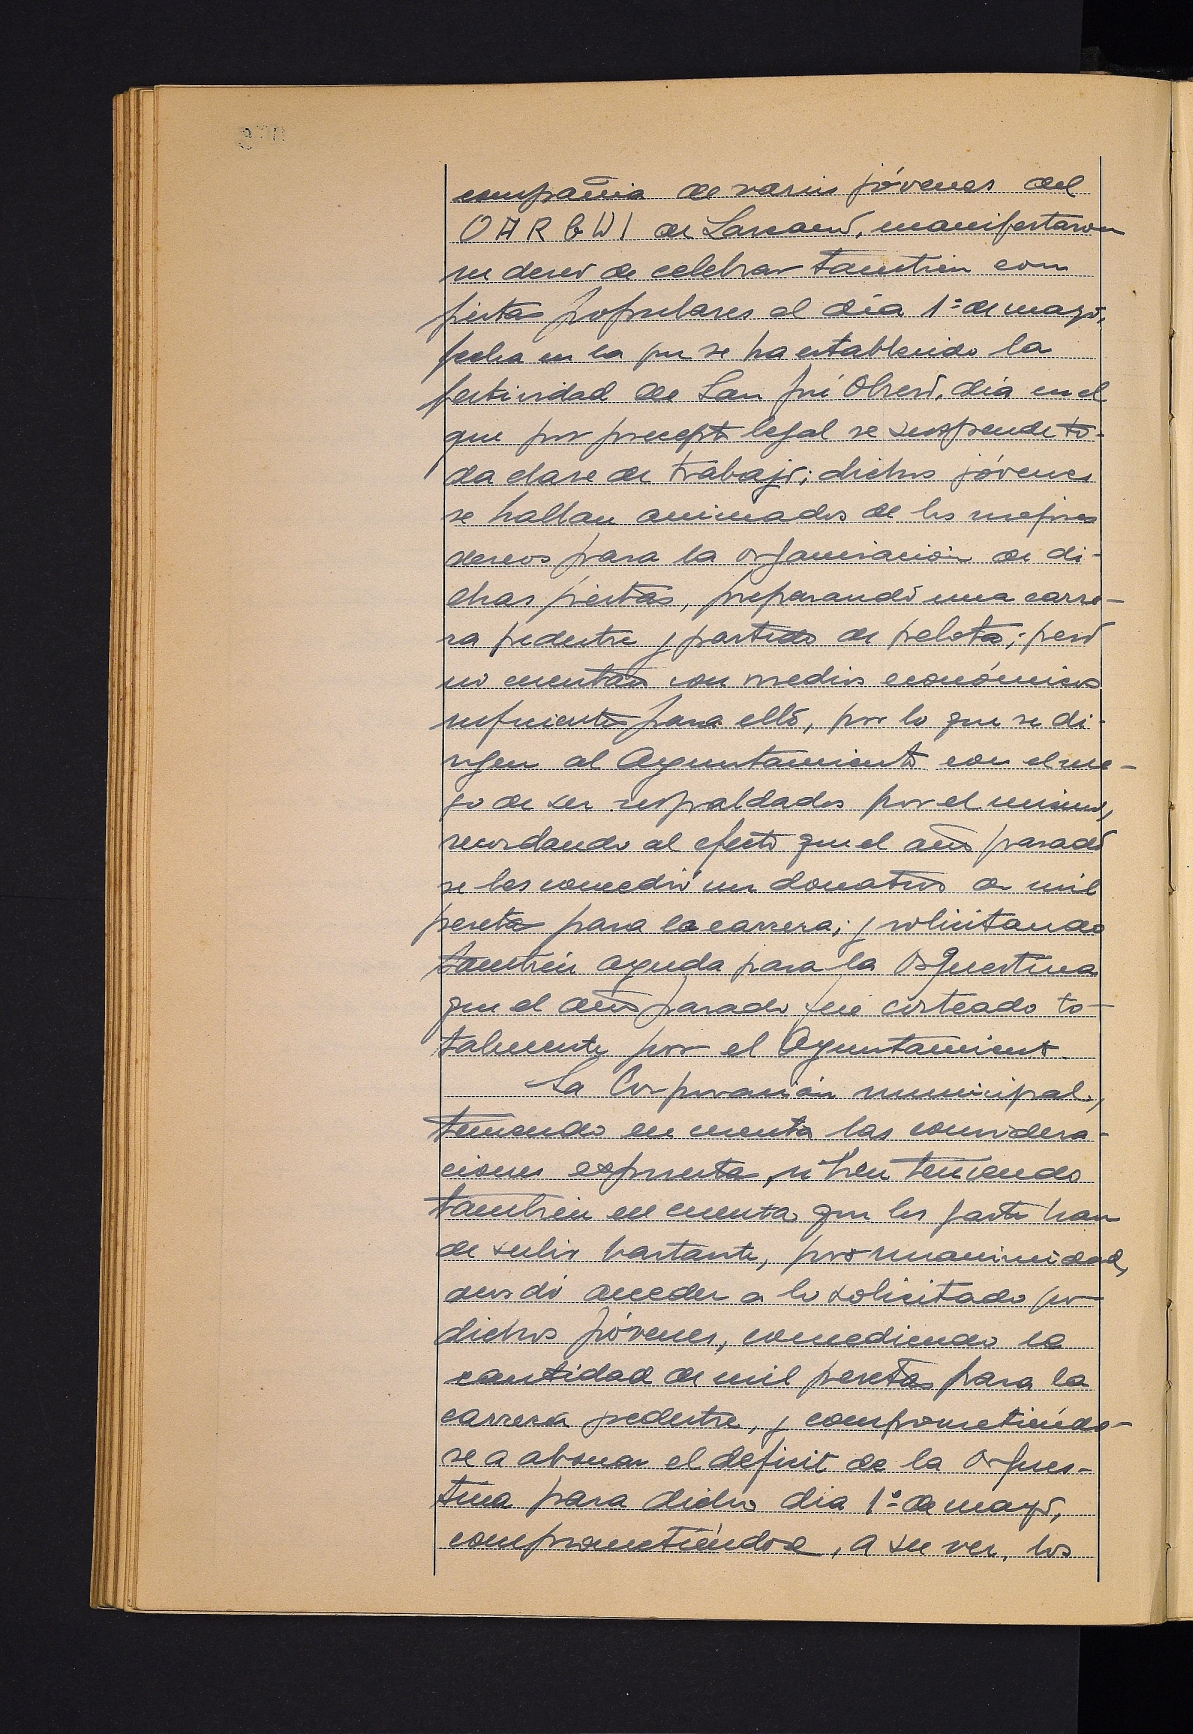 compañia de varios jóvenes del
OARGUI de Lazcano, manifestaron
su deseo de celebrar tambien con
fiestas populares el día 1º de mayo,
fecha en la que se ha establecido la
festividad de San José Obrero, día en el
que por precepto legal se suspende to-
da clase de trabajo; dichos jóvenes
se hallan animados de los mejores
deseos para la organización de di-
chas fiestas, preparando una carre-
ra pedestre y partido de pelota; pero
no cuentan con medios económicos
suficientes para ello, por lo que se di-
rigen al Ayuntamiento con el rue-
go de ser respaldados por el mismo,
recordando al efecto que el año pasado
se les concedió un donativo de mil
pesetas para la carrera; y solicitando
tambien ayuda para la Orquestina
que el año pasado fue costeado to-
talmente por el Ayuntamiento.
La Corporación municipal,
teniendo en cuenta las considera-
ciones expuestas, si bien teniendo
tambien en cuenta que los gastos han
de subir bastante, por unanimidad,
acordó acceder a lo solicitado por
dichos jóvenes, concediendo la
cantidad de mil pesetas para la
carrera pedestre, y comprometiéndo-
se a abonar el déficit de la Orques-
tina para dicho dia 1º de mayo,
comprometiéndose, a su vez, los